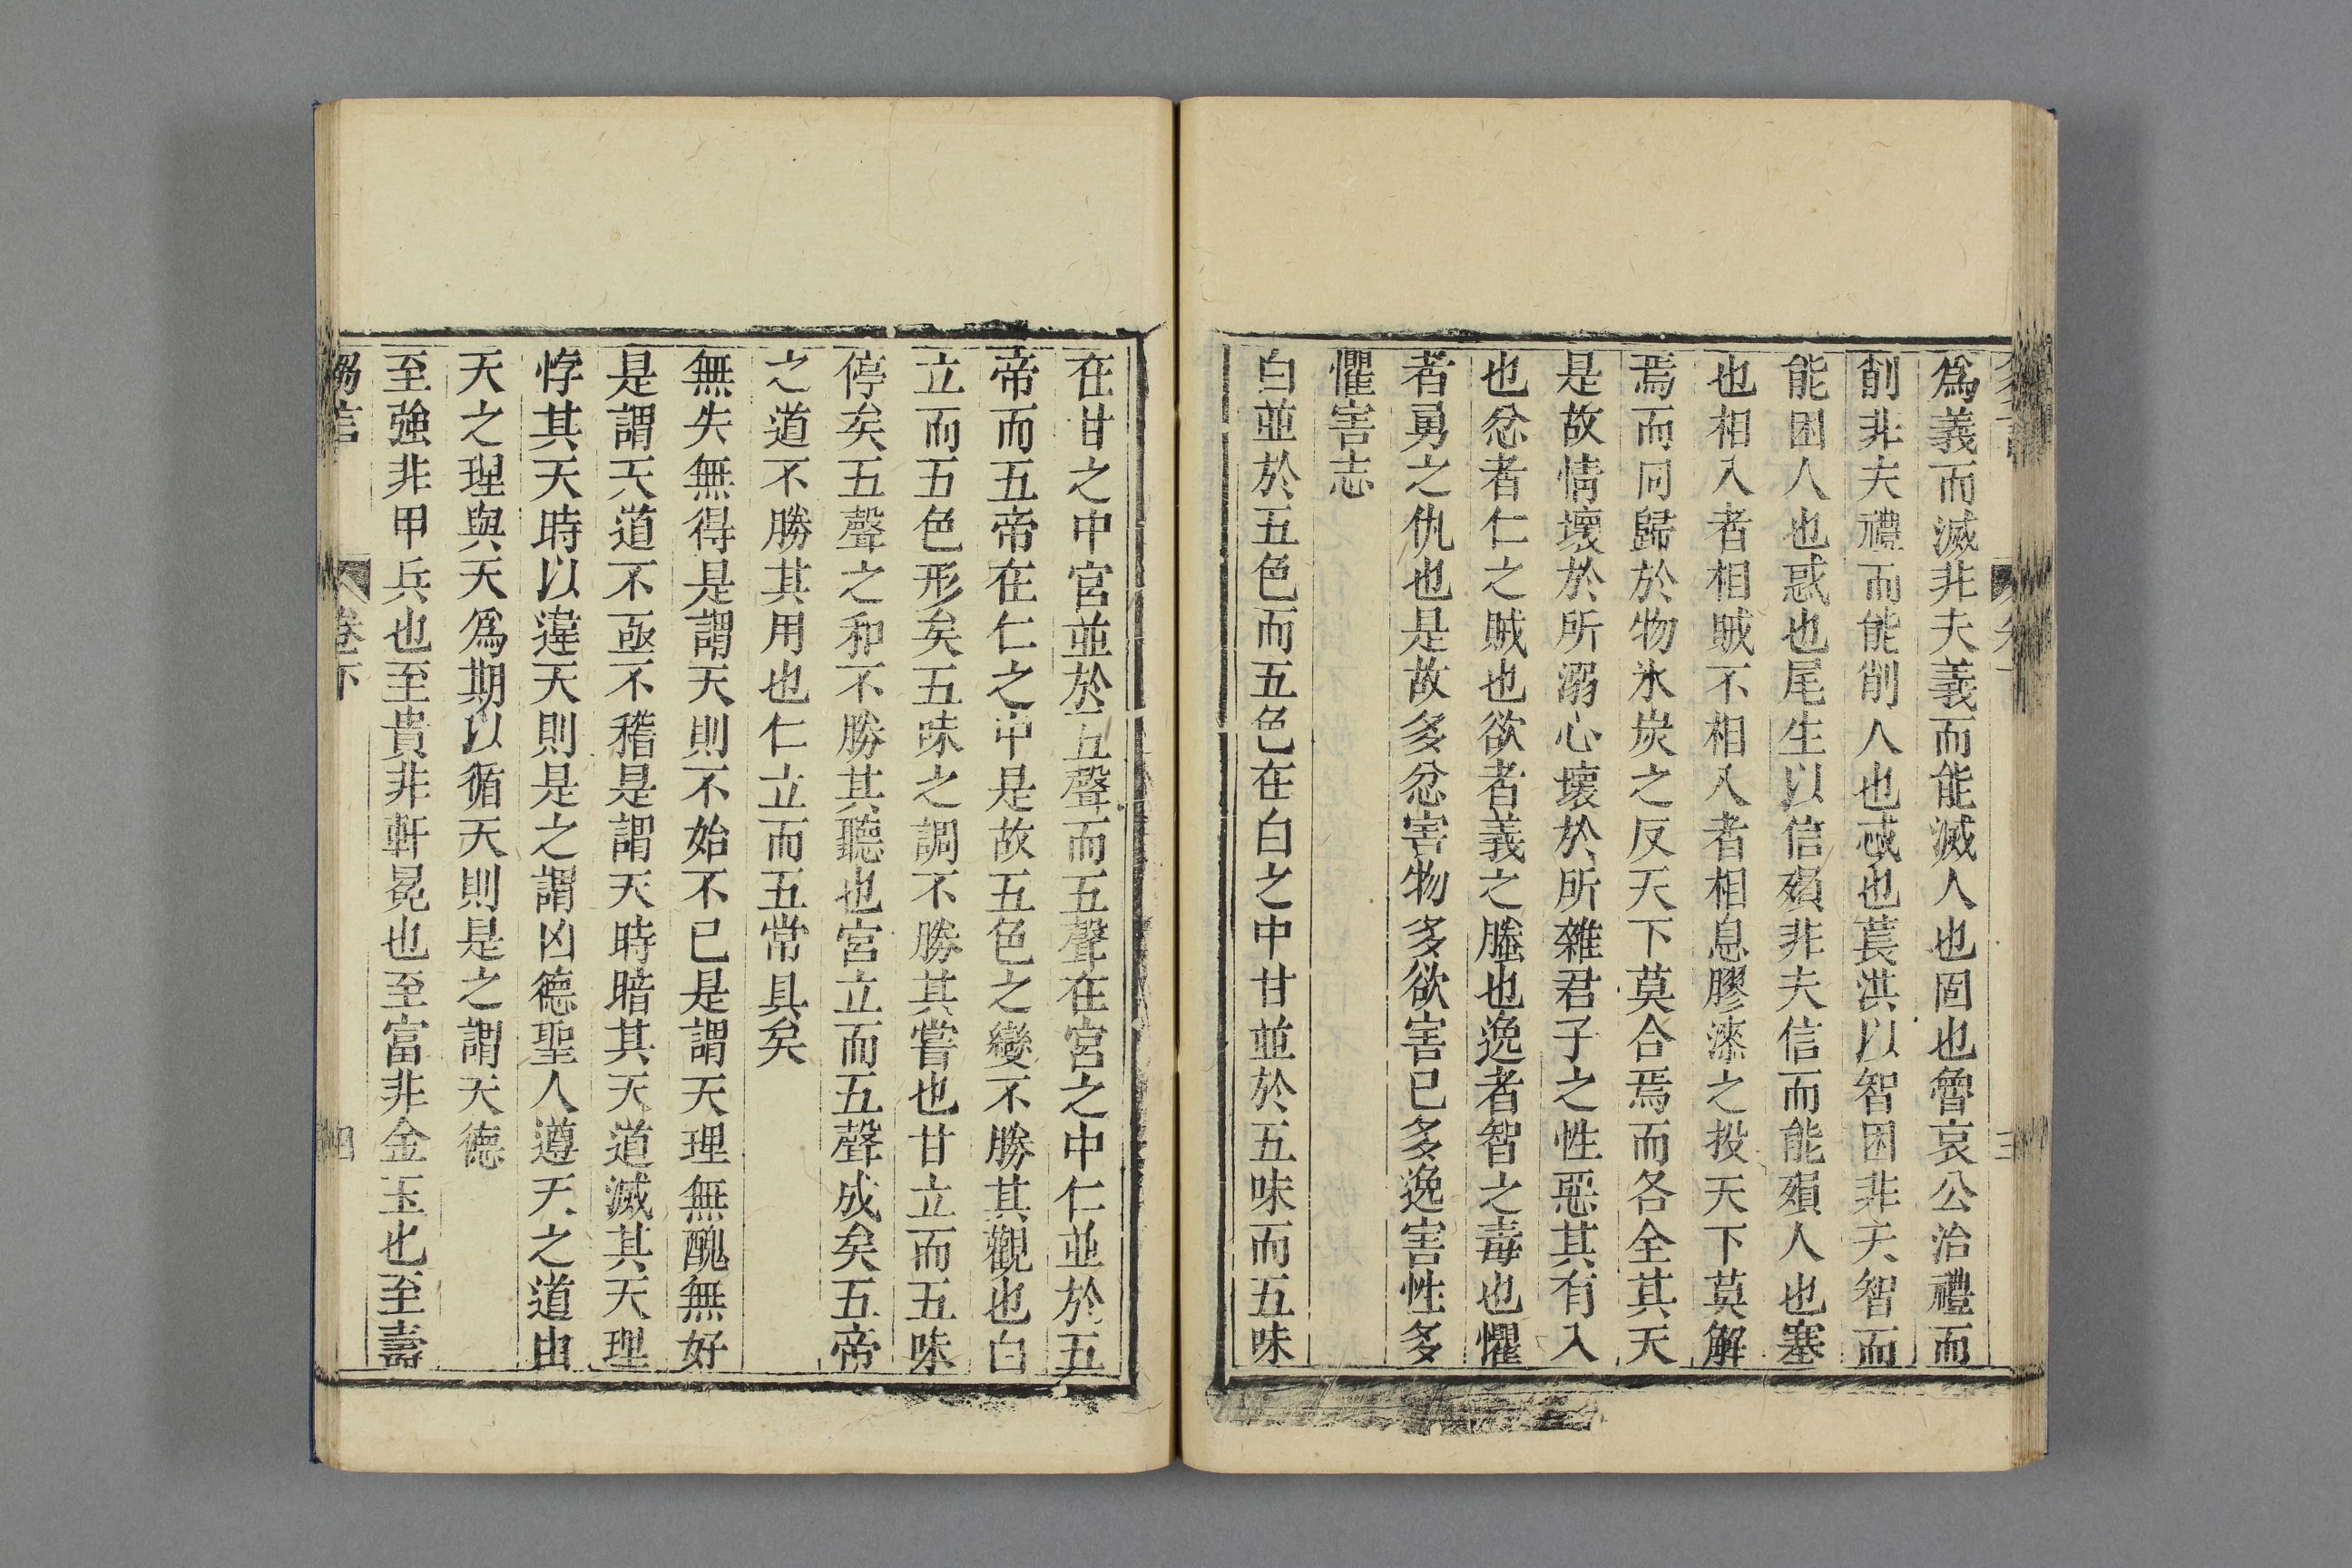 為義而滅非夫義而能滅人也固也魯哀公治禮而
削非夫禮而能削人也惑也萇洪以智困非夫智而
能困人也惑也尾生以信殞非夫信而能殞人也塞
也相入者相賊不相入者相息膠漆之投天下莫解
焉而同歸於物氷炭之反天下莫合焉而各全其天
是故情壞於所溺心壞於所雜君子之性惡其有入
也忿者仁之賊也欲者義之螣也逸者智之毒也懼
者勇之仇也是故多忿害物多欲害已多逸害性多
懼害志
白並於五色而五色在白之中甘並於五味而五味
在甘之中宮並於五聲而五聲在宮之中仁並於五
帝而五帝在仁之中是故五色之變不勝其觀也白
立而五色形矣五味之調不勝其嘗也甘立而五味
停矣五聲之和不勝其聽也宮立而五聲成矣五帝
之道不勝其用也仁立而五常具矣
無失無得是謂天則不始不已是謂天理無醜無好
是謂天道不亟不稽是謂天時暗其天道滅其天理
悖其天時以違天則是之謂凶德聖人遵天之道由
天之理與天為期以循天則是之謂天德
至強非甲兵也至貴非軒冕也至富非金玉也至壽
卷下
四